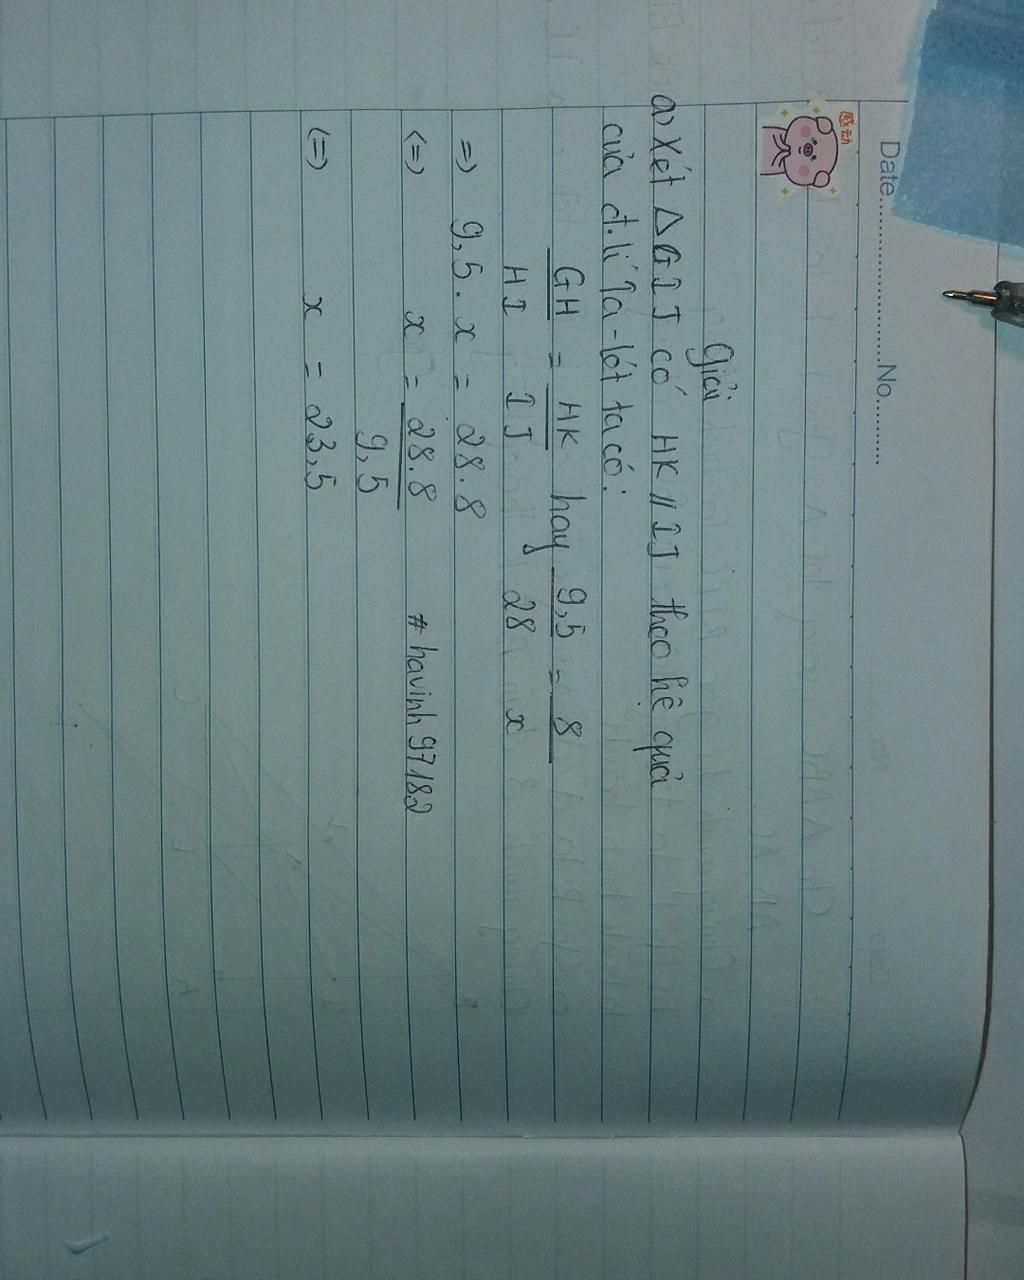 Date........................No..........
感动
Giải
a) Xét △GIJ có HK // IJ theo hệ quả
của đ.lí Ta-lét ta có:
GH = HK hay 9,5 = 8
HI IJ 28 x
=> 9,5.x = 28.8
<=> x = 28.8
9,5
#havinh97182
<=> x = 23,5